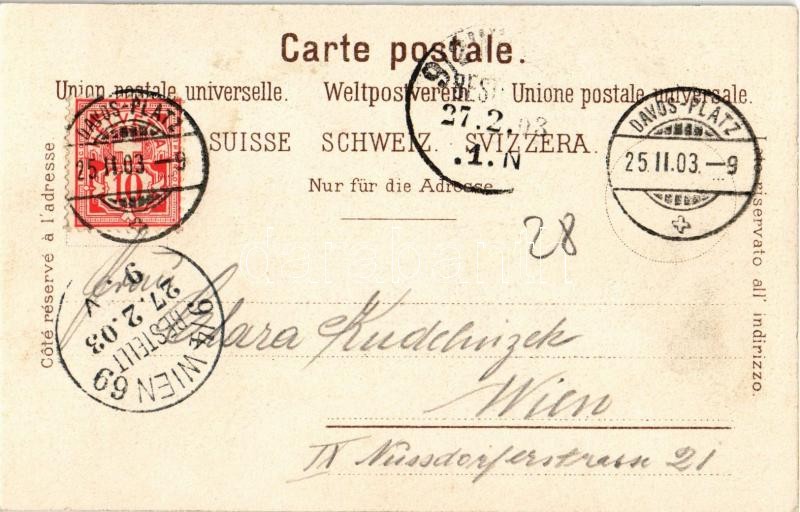 Carte postale.
Union postale universelle. Weltpostverein. Unione postale universale.
SUISSE SCHWEIZ. SVIZZERA.
Nur für die Adresse.
Côté réservé à l'adresse.
Lato riservato all' indirizzo.
DAVOS-PLATZ
25.II.03.–9
10
DAVOS-PLATZ
25.II.03.–9
27.2.03
.1.N
28
9/4 WIEN 69
BESTELLT
27.2.03
9.V
Frau Clara Kudelnizek
Wien
IX Nussdorferstrasse 21